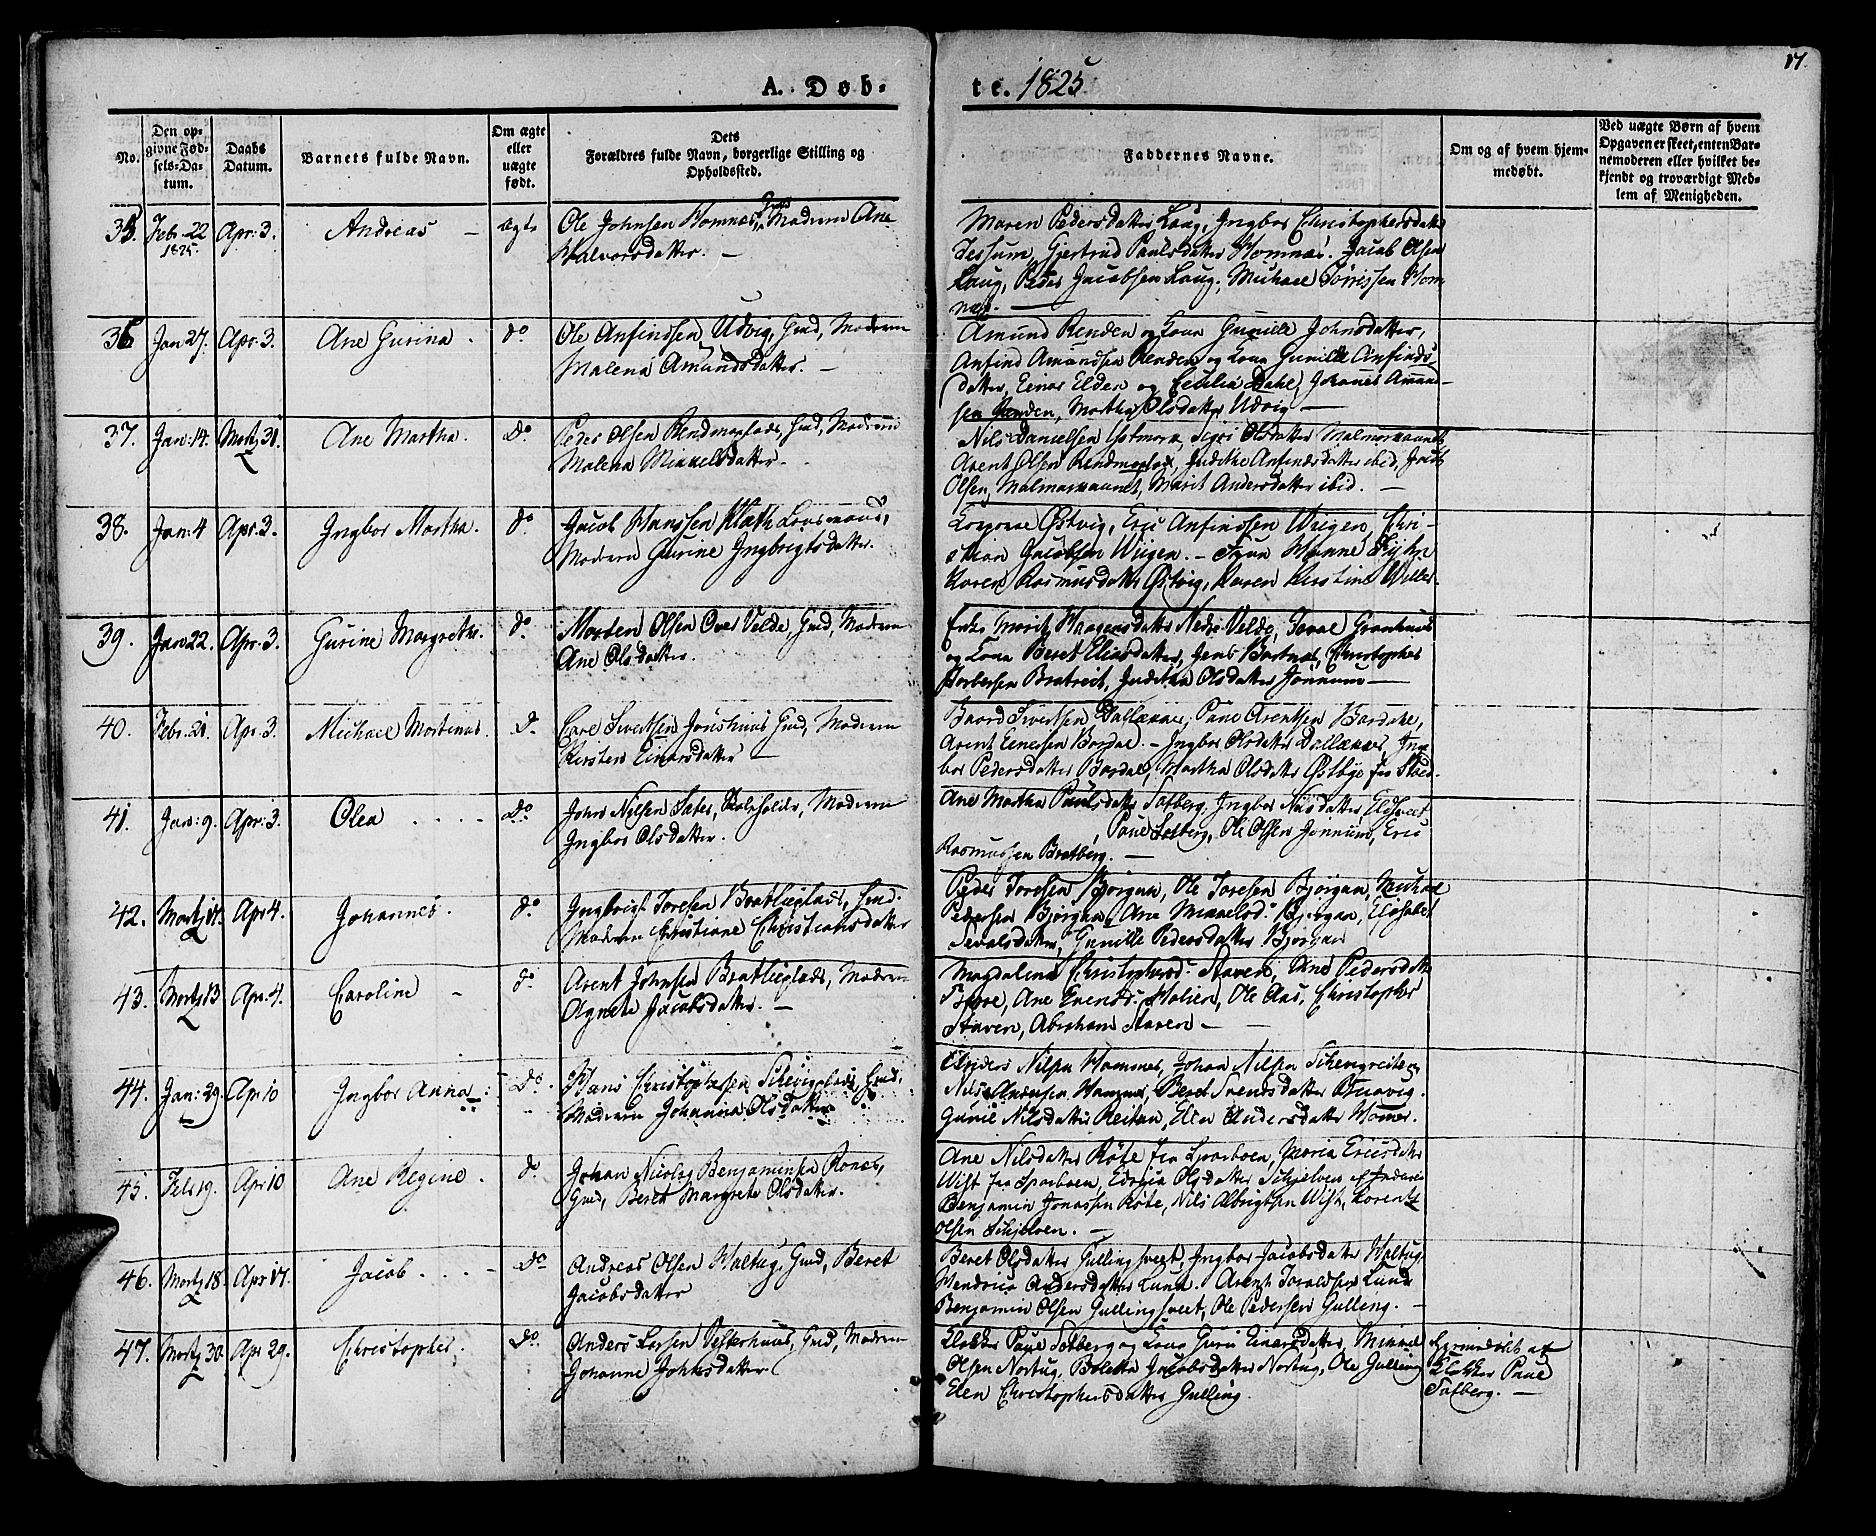 17.
A. Døb-
te. 1825
No.
Den op-
givne Fød-
sels-Da-
tum.
Daabs
Datum.
Barnets fulde Navn.
Om ægte
eller
uægte
født.
Dets
Forældres fulde Navn, borgerlige Stilling og
Opholdssted.
Faddernes Navne.
Om og af hvem hjem-
medøbt.
Ved uægte Børn af hvem
Opgaven er skeet, enten Bar-
nemoderen eller hvilket be-
kjendt og troværdigt Med-
lem af Menigheden.
35. Febr. 22 1825. Apr. 3. Andreas — ægte
Ole Johnsen Homnæs, Gmd, Modren Ane
Halvorsdatter. —
Maren Pedersdatter Laug, Ingbor Christophersdatter
Tessum, Gjertrud Paulsdatter Homnæs. Jacob Olsen
Laug, Peder Jacobsen Laug, Michael Tørrissen Hom-
næs. —
36 Jan 27. Apr. 3. Ane Gurina. do
Ole Anfindsen Udvig, Gmd, Modren
Malena Amundsdatter. —
Amund Renden og Kona Gunille Johnsdatter,
Anfind Amundsen Renden og Kona Gunille Anfinds-
datter, Einar Elden og Cecilia Dahl, Johannes Amund-
sen Renden, Martha Olsdatter Udvig —
37. Jan: 14. Martz 31. Ane Martha. Do
Peder Olsen Rendmoplads, Gmd, Modren
Malena Mikkelsdatter.
Nils Danielsen Østmoræ, Sigri Olsdatter
Arent Olsen Rendmoplad, Judithe Anfindsdatter ibid,
Olsen, Marit Andersdatter ibid. —
38. Jan: 4 Apr. 3. Ingbor Martha. do
Jacob Hanssen
Modren Gurine Ingbrigtsdatter.
Østvig, Eric Anfinssen Wiigen, Chri-
stian Jacobsen Wiigen. —
Karen Rasmusdatter Østvig, Karen Kirstine
39. Jan 22. Apr. 3. Gurine Margrethe. do
Morten Olsen Over Velde, Gmd, Modren
Ane Olsdatter.
Enke Marit Haagensdatter Nedre Velde,
og Kona Beret Eliasdatter, Jens Bartnæs, Christopher
Bratreit, Juditha Olsdatter Jønnum —
40. Febr. 21. Apr. 3. Michael Martinus. do
Carl Sivertsen Gmd, Modren
Kirsten Einarsdatter —
Baard Sivertsen Paul Arentsen
Arent Bardal. — Ingbor Olsdatter Ing-
bor Pedersdatter Bardal, Martha Olsdatter Østbye fra
41. Jan: 9. Apr. 3. Olea . . . . Do
John Nilsen Modren
Ingbor Olsdatter.
Ane Martha Paulsdatter Solberg, Ingbor Nilsdatter,
Paul Solberg, Ole Olsen Jønnum, Eric
Rasmussen Bratberg. —
42. Martz 14. Apr 4. Johannes. do
Ingbrigt Toresen Bratlieplads, Gmd.
Modren Christiane Christiansdatter
Peder Toresen Bjørgan, Ole Toresen Bjørgan, Michael
Pedersen Bjørgan, Ane Mikkelsd: Bjørgan, Elisabet
Sevalsdatter, Gunille Pedersdatter Bjørgan
43. Martz 13. Apr. 4. Caroline — do
Arent Johnsen Bratlieplads, Modren
Agnete Jacobsdatter. —
Magdalena Christophersd: Staven, Ane Pedersdatter
Ane Evensd: Holien, Ole Aas, Christopher
Staven, Abraham Staven —
44. Jan: 29. Apr 10 Ingbor Anna: Do.
Hans Christophersen Gmd,
Modren Johanna Olsdatter
Nilsen Hammer, Johan Nilsen
Nils Andersen Hammer, Beret Svendsdatter
Gunil Nilsdatter Reitan, Elen Andersdatter Hammer.
45. Feb 19. Apr 10 Ane Regine. do
Johan Nicolay Benjaminsen
Gmd, Beret Margrete Olsdatter.
Ane Nilsdatter Røte fra Sparboen, Maria Ericsdatter
Wist fra Sparboen, Olsdatter
Benjamin Jonassen Røte, Nils Albrigtsen Wist, Lorentz
Olsen —
46. Martz 18. Apr 17. Jacob . . . . Do
Andreas Olsen Haltug, Gmd, Beret
Jacobsdatter
Beret Olsdatter Gullingsveet, Ingbor Jacobsdatter Haltug
Hendrica Andersdatter Lund. Arent Toraldsen Lund
Benjamin Olsen Gullingsveet, Ole Pedersen Gulling. —
47. Martz 30. Apr 29. Christopher. Do.
Anders Larsen Vesterhuus, Gmd, Modren
Johanne Johnsdatter
Klokker Paul Solberg og Kona Guru Einersdatter, Mikkel
Olsen Nortug, Boletta Jacobsdatter Nortug, Ole Gulling
Elen Christophersdatter Gulling.
Hjemmedøbt af
Klokker Paul
Solberg. —